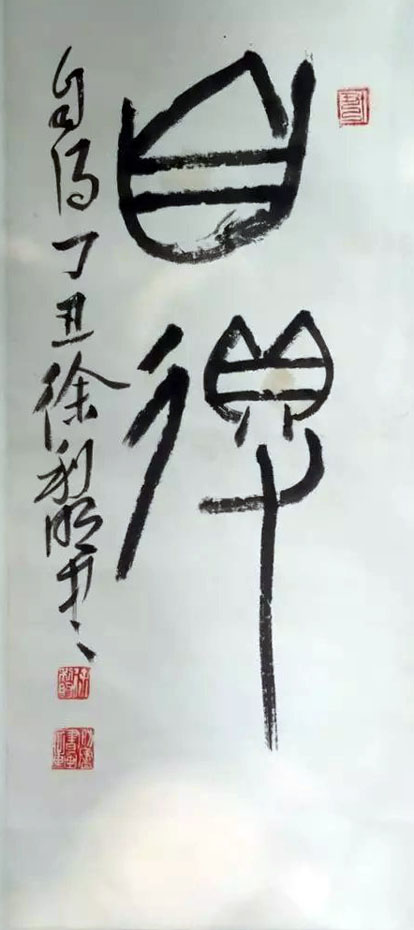 自得
自得 丁丑 徐利明书